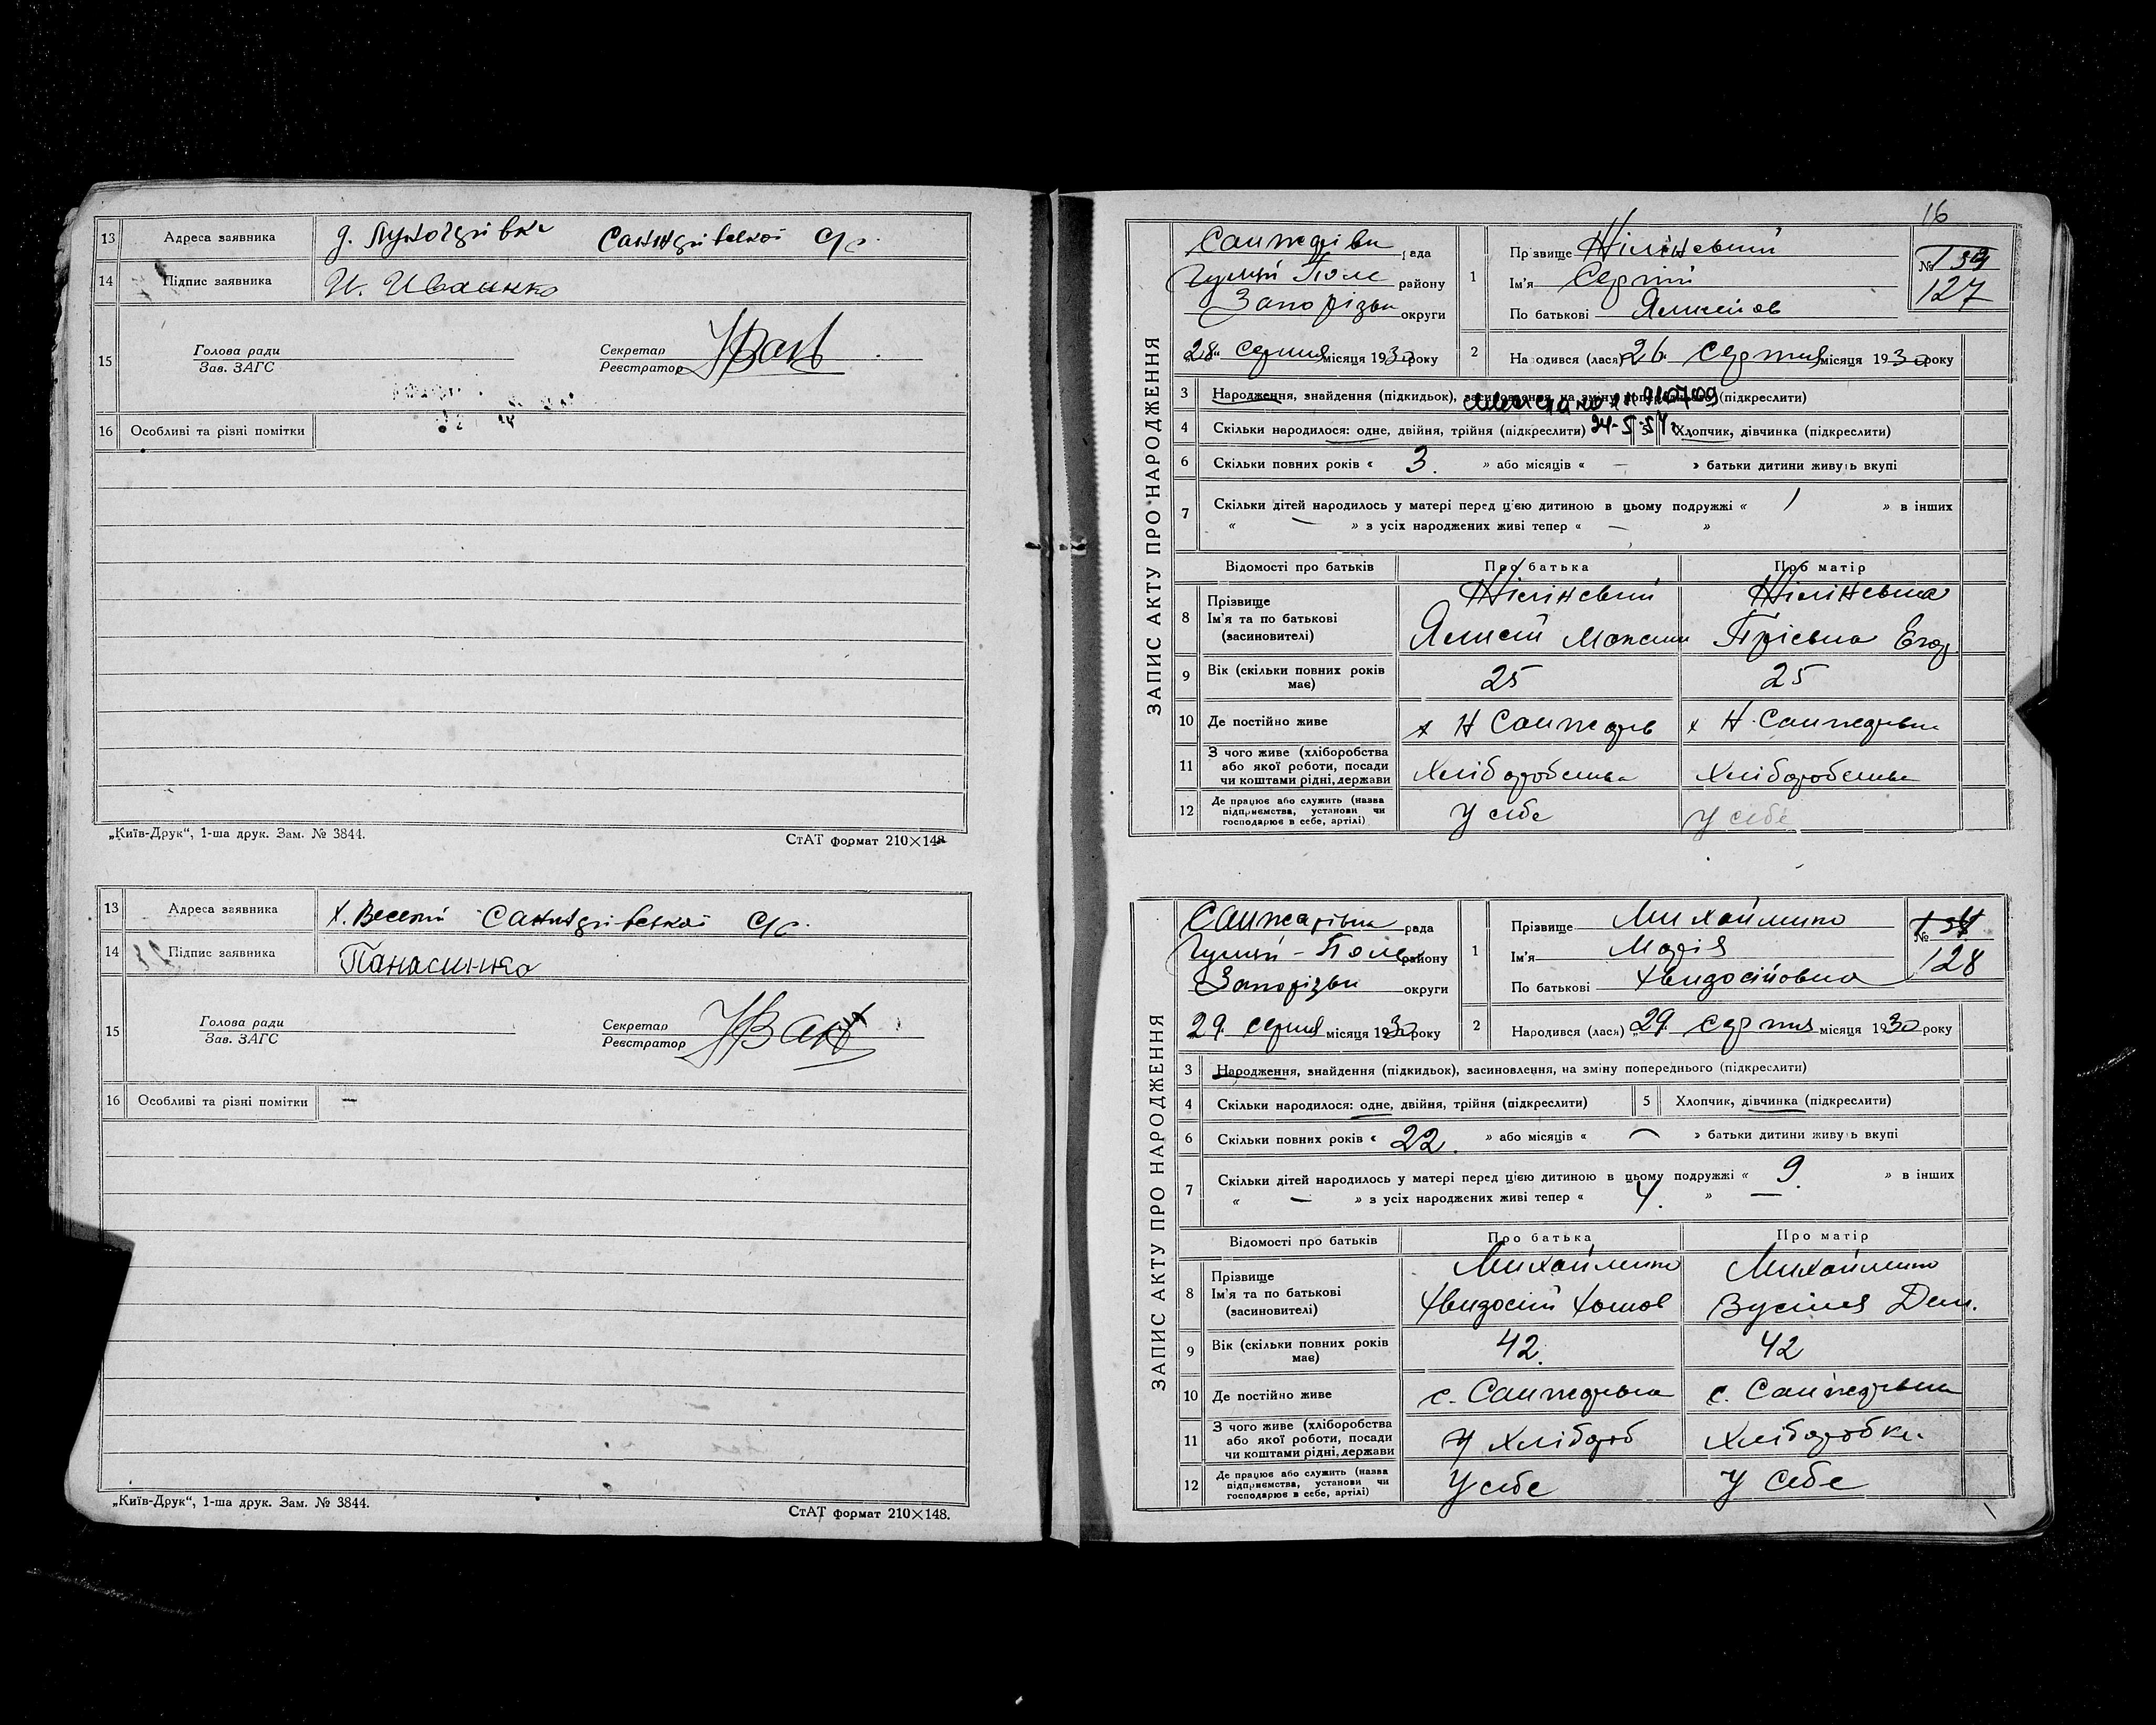 13 Адреса заявника
14 Підпис заявника И. Иваненко
15 Голова ради Секретар
Зав. ЗАГС Реєстратор
16 Особливі та різні помітки
„Київ-Друк“, 1-ша друк. Зам. № 3844. СтАТ формат 210×148
13 Адреса заявника х. Веселий Санжарівської с/р.
14 Підпис заявника Панасенко
15 Голова ради Секретар
Зав. ЗАГС Реєстратор
16 Особливі та різні помітки —
„Київ-Друк“, 1-ша друк. Зам. № 3844. СтАТ формат 210×148.
16
ЗАПИС АКТУ ПРО НАРОДЖЕННЯ
Санжарівка рада
Гуляй Поле району
Запорізька округи
„28“ серпня місяця 1930 року
1 Прізвище
Ім'я Сергій
По батькові
№ 139
127
2 Народився (лася) 26 серпня місяця 1930 року
3 Народження, знайдення (підкидьок), засиновлення, на зміну попереднього (підкреслити)
4 Скільки народилося: одне, двійня, трійня (підкреслити) 24-5-54 Хлопчик, дівчинка (підкреслити)
6 Скільки повних років « 3. » або місяців « — » батьки дитини живуть вкупі
7 Скільки дітей народилось у матері перед цією дитиною в цьому подружжі « 1 » в інших
« — » з усіх народжених живі тепер « — »
Відомості про батьків Про батька Про матір
8 Прізвище
Ім'я та по батькові
(засиновителі)
9 Вік (скільки повних років має) 25 25
10 Де постійно живе х Н Санжарів х Н. Санжарівка
11 З чого живе (хліборобства або якої роботи, посади чи коштами рідні, держави Хліборобства Хліборобства
12 Де працює або служить (назва підприємства, установи чи господарює в себе, артілі) У себе У себе
ЗАПИС АКТУ ПРО НАРОДЖЕННЯ
Санжарівка рада
Гуляй-Поле району
Запорізька округи
„29. серпня місяця 1930 року
1 Прізвище Михайленко
Ім'я Марія
По батькові Хведосійовна
№
128
2 Народився (лася) „29. серпня місяця 1930 року
3 Народження, знайдення (підкидьок), засиновлення, на зміну попереднього (підкреслити)
4 Скільки народилося: одне, двійня, трійня (підкреслити) 5 Хлопчик, дівчинка (підкреслити)
6 Скільки повних років « 22. » або місяців « — » батьки дитини живуть вкупі
7 Скільки дітей народилось у матері перед цією дитиною в цьому подружжі « 9. » в інших
« — » з усіх народжених живі тепер « 4. »
Відомості про батьків Про батька Про матір
8 Прізвище Михайленко Михайленко
Ім'я та по батькові Хведосій Хомов Дем.
(засиновителі)
9 Вік (скільки повних років має) 42. 42
10 Де постійно живе с. Санжарівка с. Санжарівка
11 З чого живе (хліборобства або якої роботи, посади чи коштами рідні, держави Хлібороб Хліборобка
12 Де працює або служить (назва підприємства, установи чи господарює в себе, артілі) У себе У себе